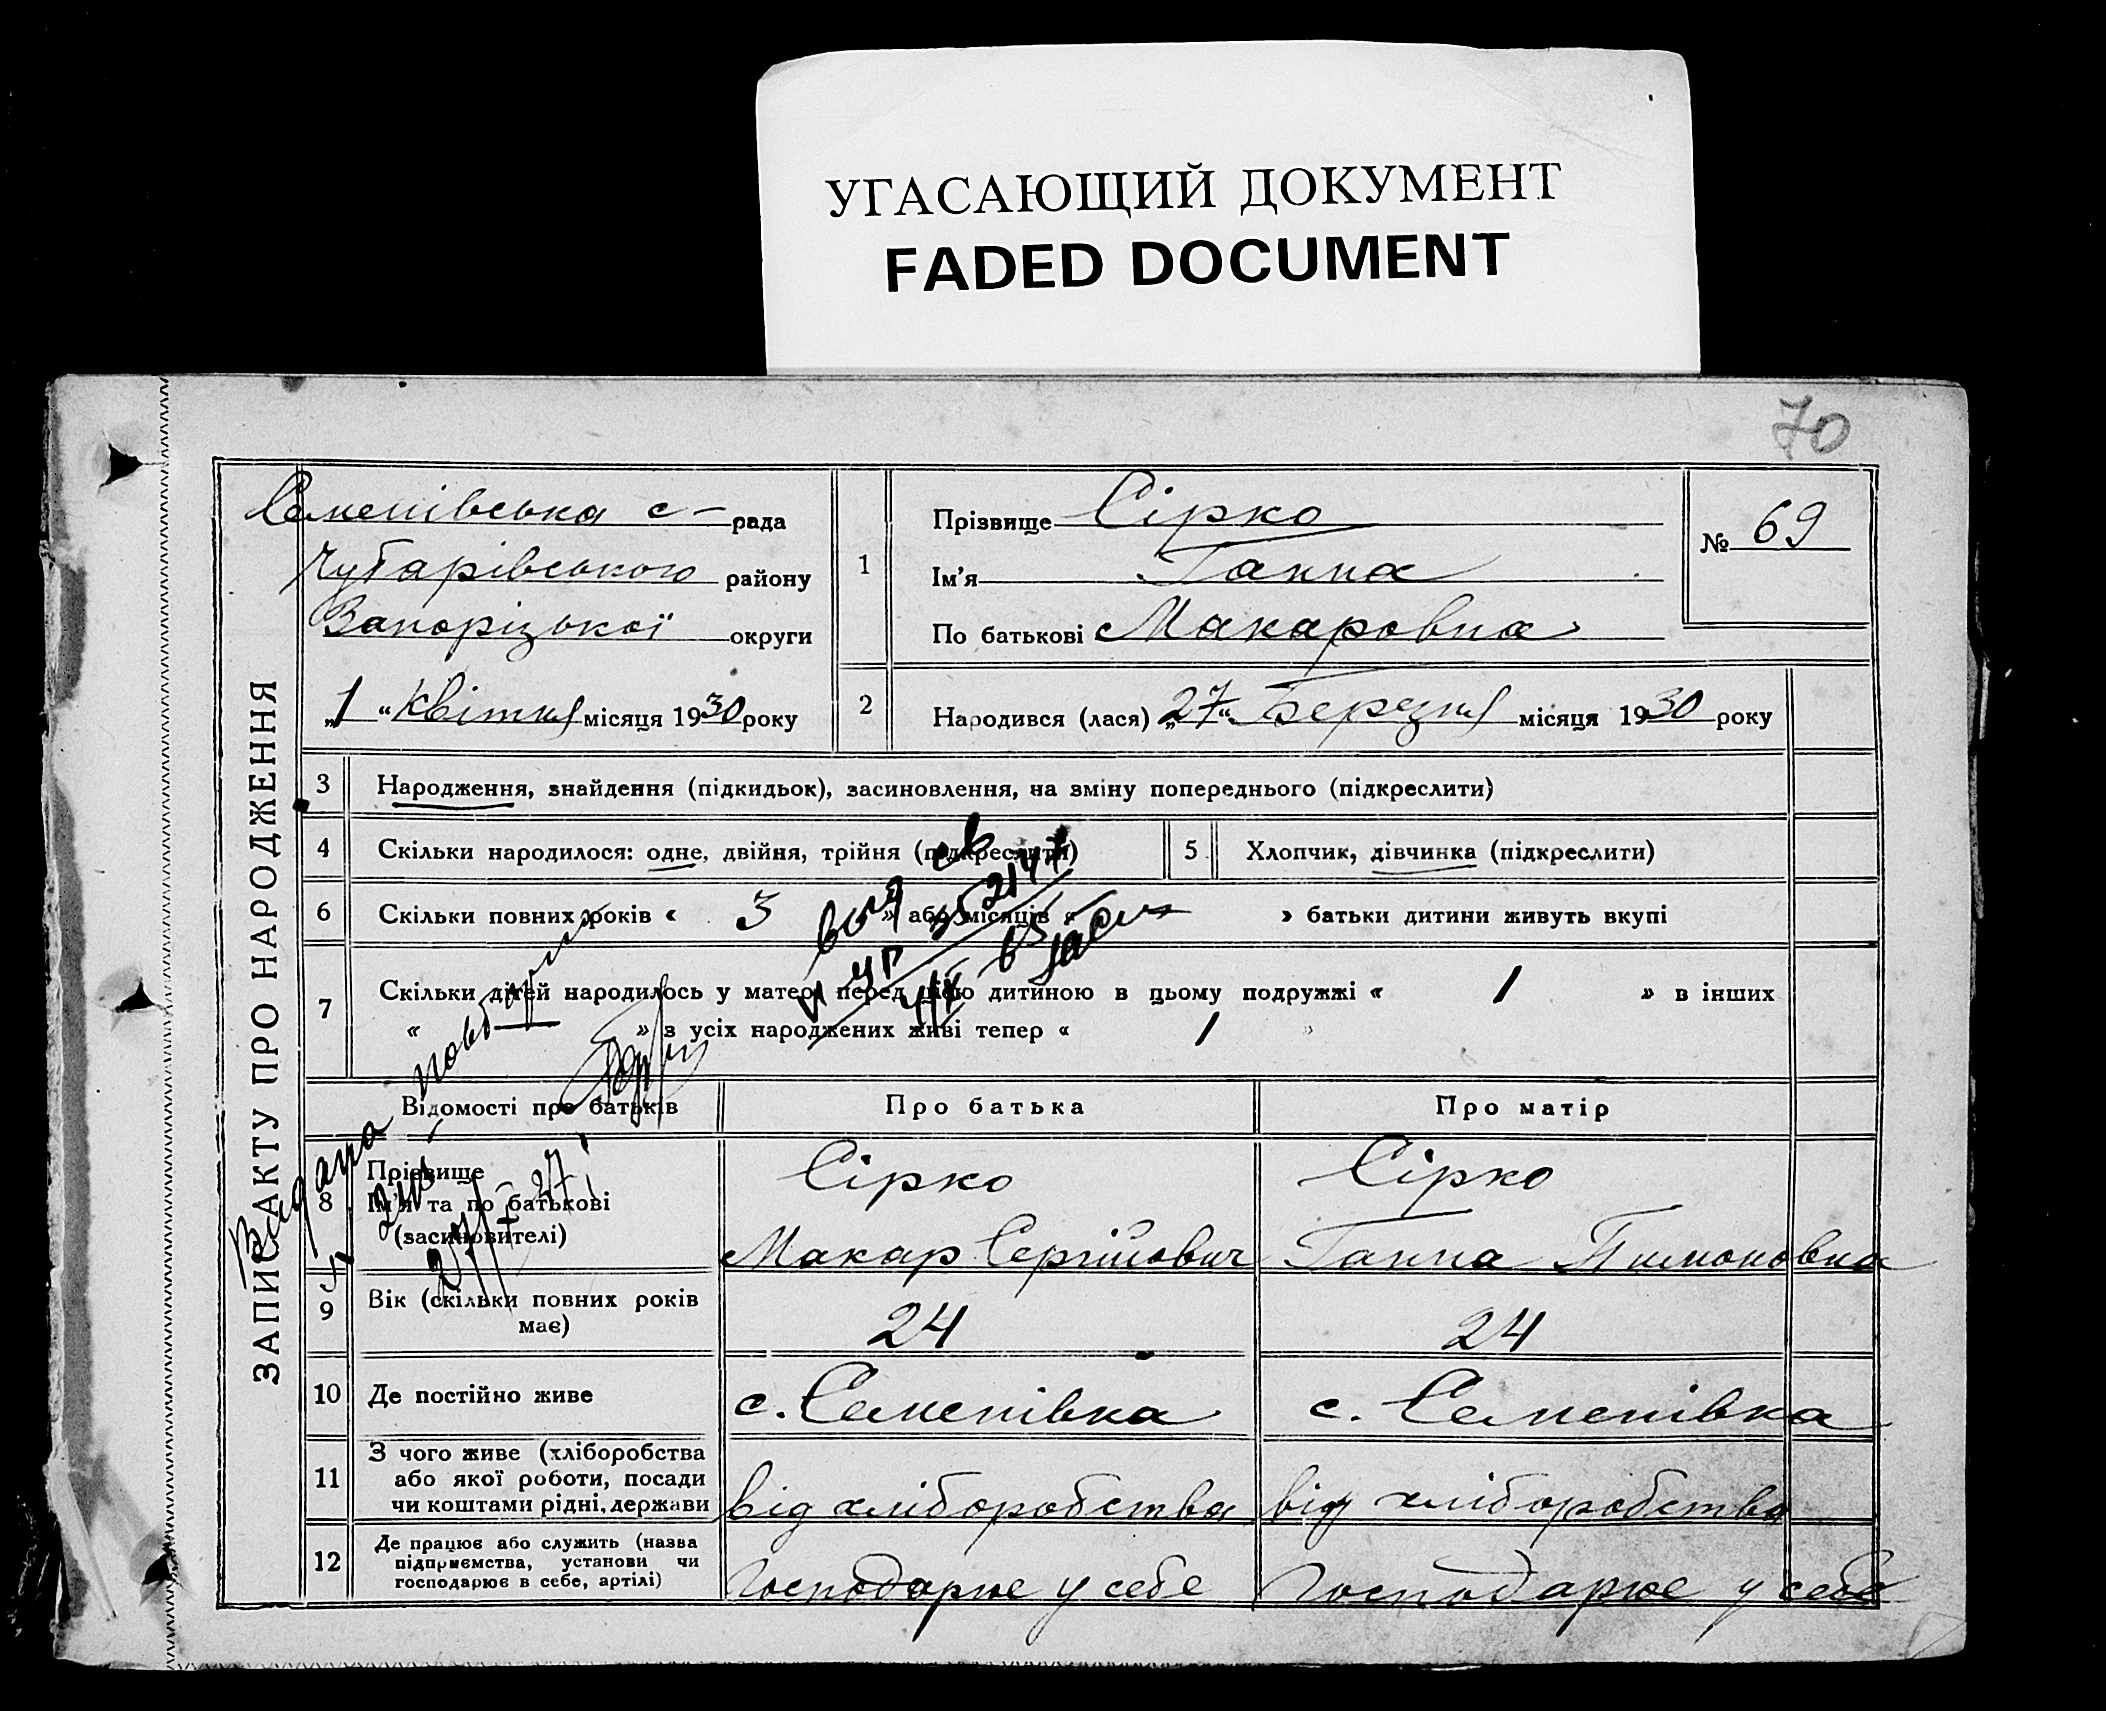 УГАСАЮЩИЙ ДОКУМЕНТ
FADED DOCUMENT
70
ЗАПИС АКТУ ПРО НАРОДЖЕННЯ
Семенівська с – рада
Чубарівського району
Запоріцької округи
„1“ Квітня місяця 1930 року
1
Прізвище Сірко
Ім'я Ганна
По батькові Макаровна
№ 69
2
Народився (лася) „27“ Березня місяця 1930 року
3 Народження, знайдення (підкидьок), засиновлення, на зміну попереднього (підкреслити)
4 Скільки народилося: одне, двійня, трійня (підкреслити) 5 Хлопчик, дівчинка (підкреслити)
6 Скільки повних років « 3 » або місяців « » батьки дитини живуть вкупі
7 Скільки дітей народилось у матері перед цією дитиною в цьому подружжі « 1 » в інших
« — » з усіх народжених живі тепер « 1 »
Видана повторно
Відомості про батьків Про батька Про матір
8 Прізвище Сірко Сірко
Ім'я та по батькові
(засиновителі) Макар Сергійович Ганна Пимоновна
9 Вік (скільки повних років
має) 24 24
10 Де постійно живе с. Семенівка с. Семенівка
11 З чого живе (хліборобства
або якої роботи, посади
чи коштами рідні, держави від хліборобства від хліборобства
12 Де працює або служить (назва
підприємства, установи чи
господарює в себе, артілі) Господарює у себе Господарює у себе